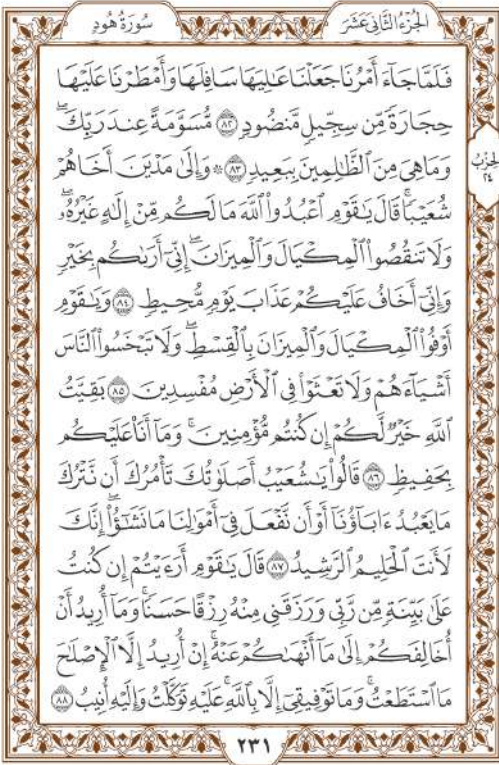 الجُزْءُ الثَّانِي عَشَرَ
سُورَةُ هُودٍ
فَلَمَّا جَآءَ أَمْرُنَا جَعَلْنَا عَٰلِيَهَا سَافِلَهَا وَأَمْطَرْنَا عَلَيْهَا
حِجَارَةً مِّن سِجِّيلٍ مَّنضُودٍ ٨٢ مُّسَوَّمَةً عِندَ رَبِّكَۖ
وَمَا هِيَ مِنَ ٱلظَّٰلِمِينَ بِبَعِيدٍ ٨٣ ۞ وَإِلَىٰ مَدْيَنَ أَخَاهُمْ
الحِزْبُ
٢٤
شُعَيْبًاۚ قَالَ يَٰقَوْمِ ٱعْبُدُوا۟ ٱللَّهَ مَا لَكُم مِّنْ إِلَٰهٍ غَيْرُهُۥۖ
وَلَا تَنقُصُوا۟ ٱلْمِكْيَالَ وَٱلْمِيزَانَۖ إِنِّيٓ أَرَىٰكُم بِخَيْرٍ
وَإِنِّيٓ أَخَافُ عَلَيْكُمْ عَذَابَ يَوْمٍ مُّحِيطٍ ٨٤ وَيَٰقَوْمِ
أَوْفُوا۟ ٱلْمِكْيَالَ وَٱلْمِيزَانَ بِٱلْقِسْطِۖ وَلَا تَبْخَسُوا۟ ٱلنَّاسَ
أَشْيَآءَهُمْ وَلَا تَعْثَوْا۟ فِي ٱلْأَرْضِ مُفْسِدِينَ ٨٥ بَقِيَّتُ
ٱللَّهِ خَيْرٌ لَّكُمْ إِن كُنتُم مُّؤْمِنِينَۚ وَمَآ أَنَا۠ عَلَيْكُم
بِحَفِيظٍ ٨٦ قَالُوا۟ يَٰشُعَيْبُ أَصَلَوٰتُكَ تَأْمُرُكَ أَن نَّتْرُكَ
مَا يَعْبُدُ ءَابَآؤُنَآ أَوْ أَن نَّفْعَلَ فِيٓ أَمْوَٰلِنَا مَا نَشَٰٓؤُا۟ۖ إِنَّكَ
لَأَنتَ ٱلْحَلِيمُ ٱلرَّشِيدُ ٨٧ قَالَ يَٰقَوْمِ أَرَءَيْتُمْ إِن كُنتُ
عَلَىٰ بَيِّنَةٍ مِّن رَّبِّي وَرَزَقَنِي مِنْهُ رِزْقًا حَسَنًاۚ وَمَآ أُرِيدُ أَنْ
أُخَالِفَكُمْ إِلَىٰ مَآ أَنْهَىٰكُمْ عَنْهُۚ إِنْ أُرِيدُ إِلَّا ٱلْإِصْلَٰحَ
مَا ٱسْتَطَعْتُۚ وَمَا تَوْفِيقِيٓ إِلَّا بِٱللَّهِۚ عَلَيْهِ تَوَكَّلْتُ وَإِلَيْهِ أُنِيبُ ٨٨
٢٣١